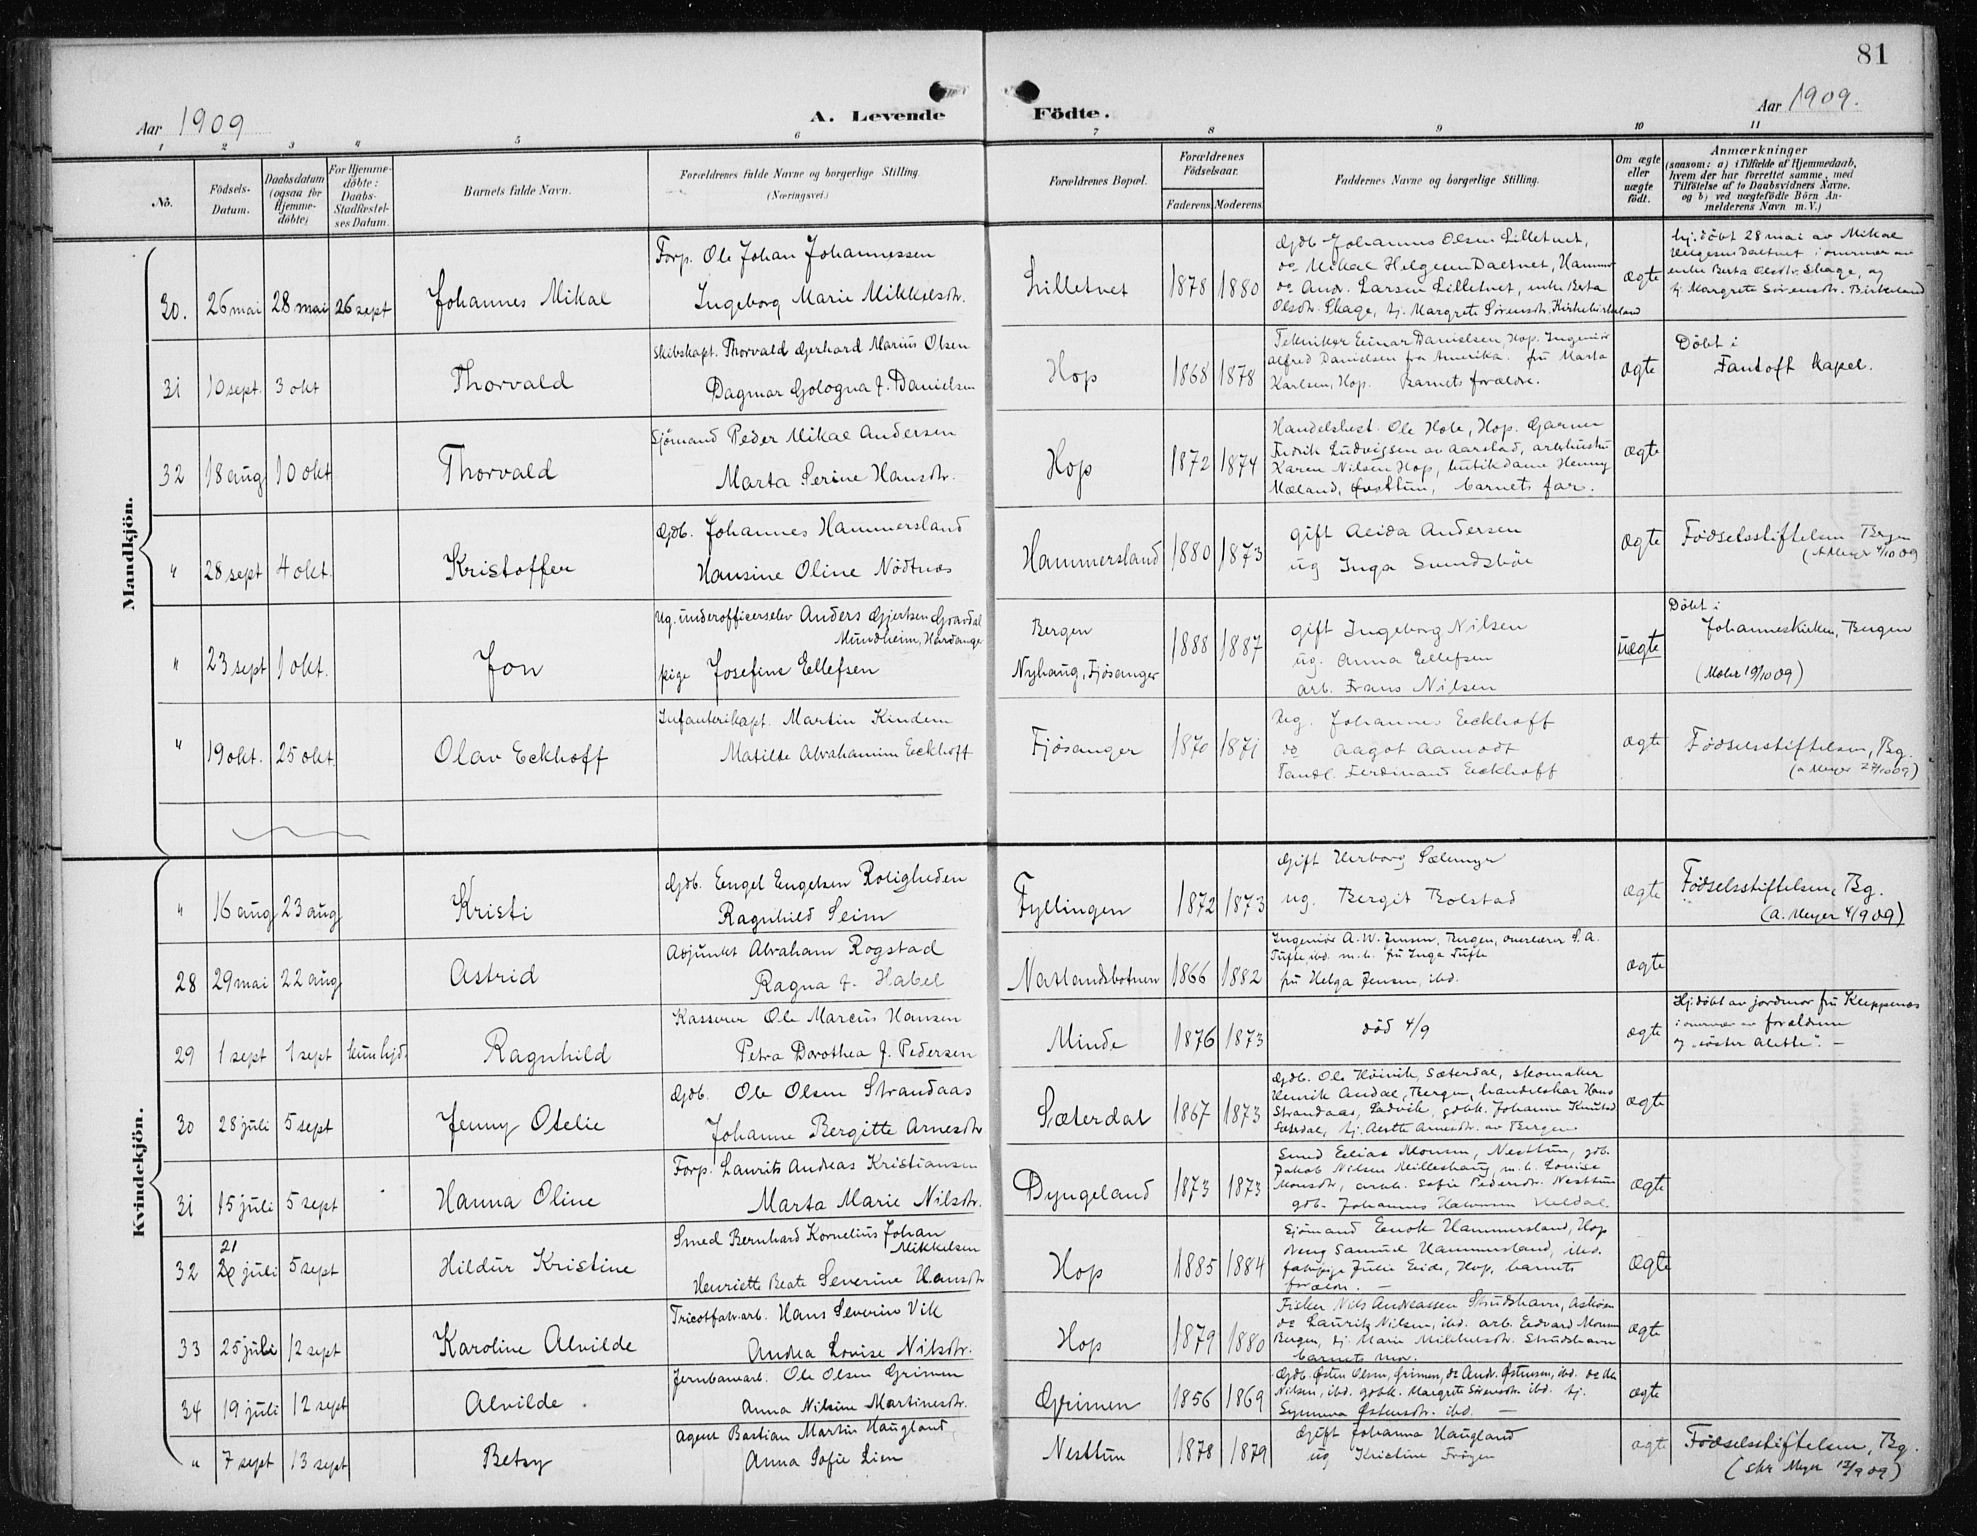 81
Aar 1909
A. Levende
Födte.
Aar 1909.
1 2 3 4 5 6 7 8 9 10 11
No.
Födsels-
Datum.
Daabsdatum
(ogsaa for
Hjemme-
döbte)
For Hjemme-
döbte:
Daabs-
Stadfæstel-
ses Datum.
Barnets fulde Navn.
Forældrenes fulde Navne og borgerlige Stilling.
(Næringsvei)
Forældrenes Bopæl.
Forældrenes
Födselsaar.
Faderens. Moderens.
Faddernes Navne og borgerlige Stilling.
Om ægte
eller
uægte
födt.
Anmærkninger
(saasom: a) i Tilfælde af Hjemmedaab,
hvem der har forrettet samme, med
Tilföielse af to Daabsvidners Navne,
og b) ved uægtefödte Börn An-
melderens Navn m. V.)
Mandkjön.
30. 26 mai 28 mai 26 sept Johannes Mikal
Forp. Ole Johan Johannessen
Ingeborg Marie Mikkelsdr.
Lilletvet 1878 1880
Gdb Johannes Olsen Lilletvet,
do Mikal Helgesen Daltvet, Hammer
do Andr. Larsen Lilletvet, enke Berta
Olsdtr. Skage, tj. Margrete Sørensdtr. Kirkebirkeland
ægte
hj.døbt 28 mai av Mikal
Helgesen Daltvet i overvær av
enke Berta Olsdtr. Skage, og
tj. Margrete Sørensdtr. Birkeland
31 10 sept. 3 okt Thorvald
Skibskapt. Thorvald Gerhard Marius Olsen
Dagmar Gologna f. Danielsen
Hop 1868 1878
Tekniker Einar Danielsen, Hop. Ingeniør
Alfred Danielsen fra Amerika. fru Marta
Karlsen, Hop. Barnets forældre.
ægte
Døbt i
Fantoft kapel.
32 18 aug 10 okt Thorvald
Sjømand Peder Mikal Andersen
Marta Serine Hansdr.
Hop 1872 1874
Handelsbest. Ole Hole, Hop. Garver
Fredrik Ludvigsen av Aarstad, arb.hustru
Karen Nilsen Hop, butikdame Henny
Mæland, Øvsttun, barnets far.
ægte
" 28 sept 4 okt. Kristoffer
Gdb. Johannes Hammersland
Hansine Oline Nødtnes
Hammersland 1880 1873
gift Alida Andersen
ug Inga Sundsbøe
ægte
Fødselsstiftelsen Bergen
(A Meyer 4/10 09
" 23 sept 1 okt. Jon
Ug. underofficerselev Anders Gjertsen Gravdal
Mundheim, Hardanger
pige Josefine Ellefsen
Bergen
Nyhaug, Fjøsanger
1888 1887
gift Ingeborg Nilsen
ug. Anna Ellefsen
arb. Frans Nilsen
uægte
Døbt i
Johanneskirken, Bergen
(Mohr 19/10 09)
" 19 okt. 25 okt. Olav Eckhoff
Infanterikapt. Martin Kindem
Matilde Abrahamine Eckhoff
Fjøsanger 1870 1871
Ug. Johannes Eckhoff
do Aagot Aamodt
Tandl. Ferdinand Eckhoff
ægte
Fødselsstiftelsen, Bg.
(A Meyer 27/10 09)
Kvindekjön.
" 16 aug 23 aug Kristi
Gdb. Engel Engelsen Roligheden
Ragnhild Seim
Fyllingen 1872 1873
Gift Herborg Sælemyr
ug. Bergit Bolstad
ægte
Fødselsstiftelsen, Bg.
(A. Meyer 4/9 09)
28 29 mai 22 aug Astrid
Adjunkt Abraham Rogstad
Ragna f. Habel
Natlandsbotnen 1866 1882
Ingeniør A. W. Jensen, Bergen, overlærer S. A.
Tufte, ibd. m. h. fru Inga Tufte
fru Helga Jensen, ibd.
ægte
29 1 sept 1 sept kun hjd. Ragnhild
Kasserer Ole Marcus Hansen
Petra Dorothea f. Pedersen
Minde 1876 1873
død 4/9
ægte
Hj.døbt av jordmor fru Kleppenes
i overvær av forældrene
og "søster Alette". —
30 28 juli 5 sept Jenny Otelie
Gdb. Ole Olsen Strandaas
Johanne Bergitte Arnesdtr
Sæterdal 1867 1873
Gdb. Ole Høivik, Sæterdal, skomaker
Henrik Andal, Bergen, handelskar Hans
Strandaas, Ladvik, gdbk. Johanne Knutsd
Sæterdal, tj. Arnesdtr. av Bergen.
ægte
31 15 juli 5 sept Hanna Oline
Forp. Laurits Andreas Kristiansen
Marta Marie Nilsdtr.
Dyngeland 1873 1873
Smed Elias Monsen, Nesttun, gdb.
Jakob Nilsen Milleshaug, m. h. Louise
Monsdtr, arbk. Sofie Pedersdr. Nesttun
gdb. Johannes Halvorsen Heldal.
ægte
32 21
20 juli 5 sept Hildur Kristine
Smed Bernhard Kornelius Johan
Mikkelsen
Henriette Beate Severine Hansdtr
Hop 1885 1884
Sjømand Enok Hammersland, Hop
dreng Samuel Hammersland, ibd.
fabrpige Julie Eide, Hop, barnets
forældre. —
ægte
33 25 juli 12 sept Karoline Alvilde
Tricotfabr.arb. Hans Severin Vik
Andrea Lovise Nilsdtr.
Hop 1879 1880
Fisker Nils Andreassen Strudshavn, Askøen
do Laurits Nilsen, ibd. arb. Edvard Monsen
Bergen, tj. Marie Mikkelsdtr. Strudshavn
barnets mor.
ægte
34 19 juli 12 sept Alvilde
Jernbanearb. Ole Olsen Grimen
Anna Nilsine Martinesdtr.
Grimen 1856 1869
Gdb. Østen Olsen, Grimen, do Andr. Østensen, ibd. do Ole
Nilsen, ibd. gdbk. Margrete Sørensdtr ibd. tj.
Synneva Østensdtr. ibd. —
ægte
" 7 sept 13 sept Betsy
Agent Bastian Martin Haugland
Anna Sofie Lien
Nesttun 1878 1879
Gift Johanna Haugland
ug Kristine Frøyen
ægte
Fødselsstiftelsen, Bg.
(skr Meyer 13/9 09)